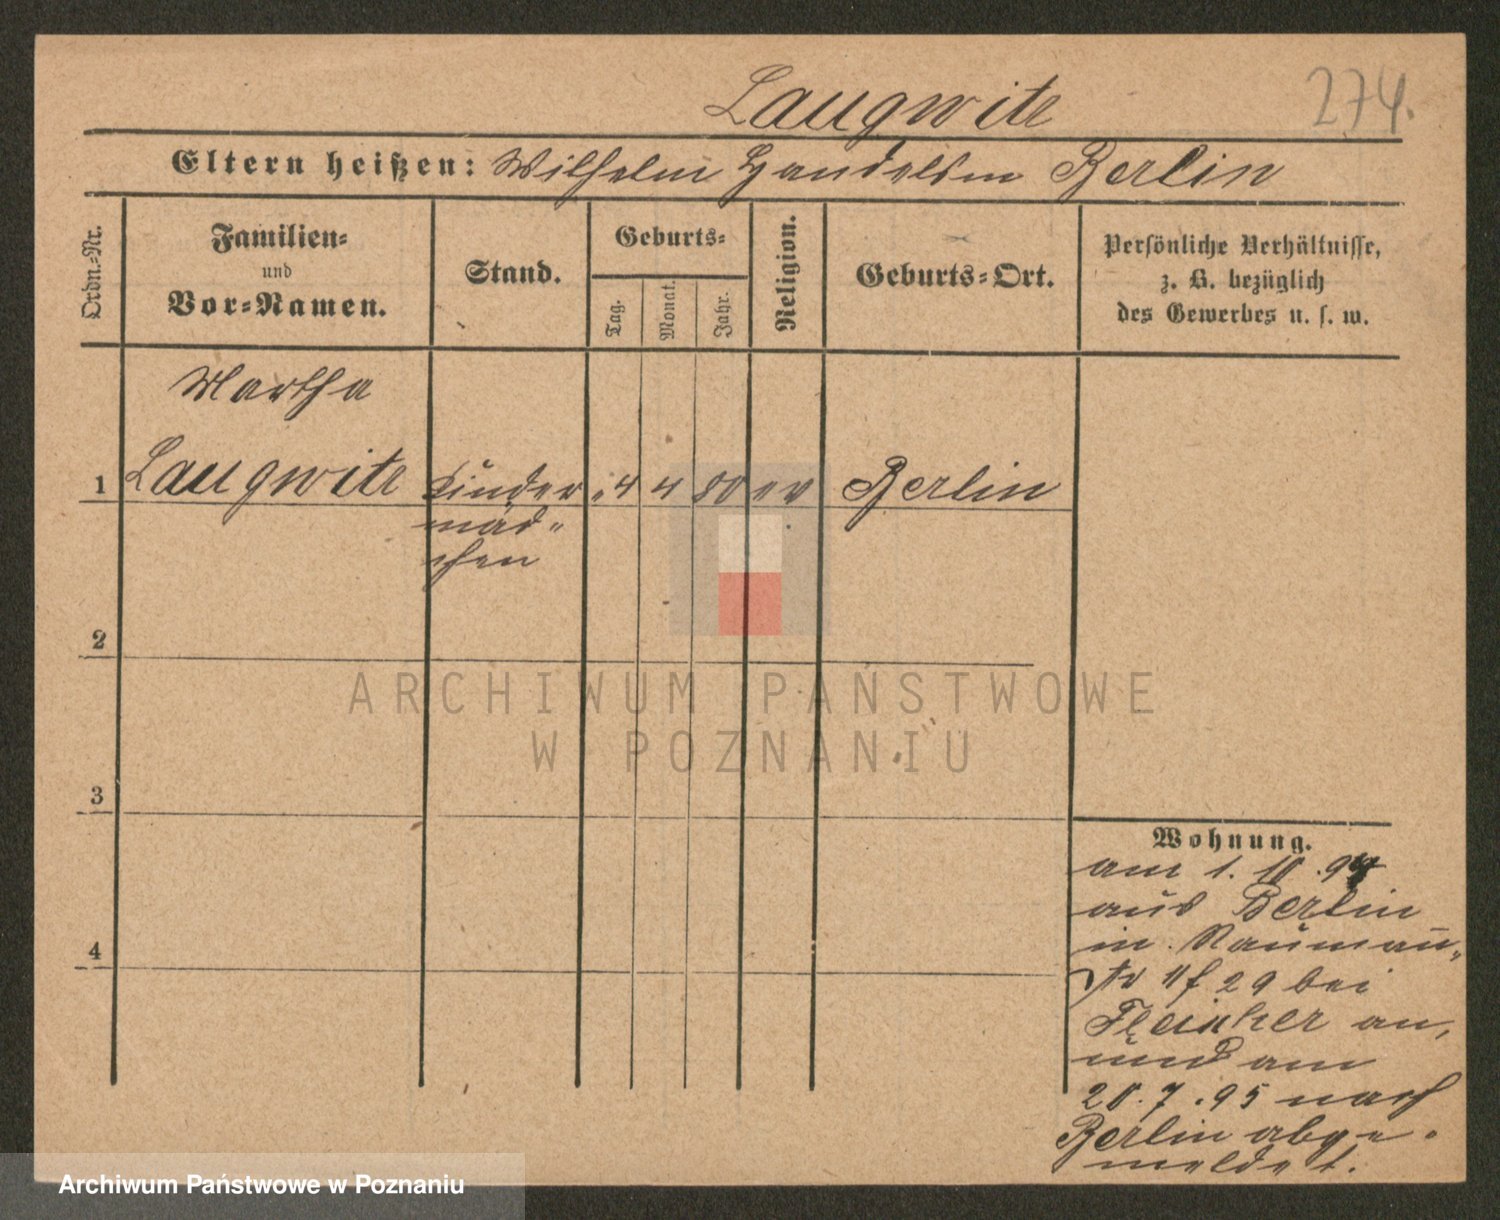 Laugwitz
274.
Eltern heißen: Wilhelm Handelsm Berlin
Ordn.-Nr.
Familien-
und
Vor-Namen.
Stand.
Geburts-
Tag.
Monat.
Jahr.
Religion.
Geburts-Ort.
Persönliche Verhältnisse,
z. B. bezüglich
des Gewerbes u. s. w.
Martha
1 Laugwitz Kinder 4 4 80 ev Berlin
mäd-
chen
2
3
4
ARCHIWUM PAŃSTWOWE
W POZNANIU
Wohnung.
am 1. 10. 94
aus Berlin
in Naumann
29 bei
an,
und am
20. 7. 95 nach
Berlin abge-
meldet.
Archiwum Państwowe w Poznaniu